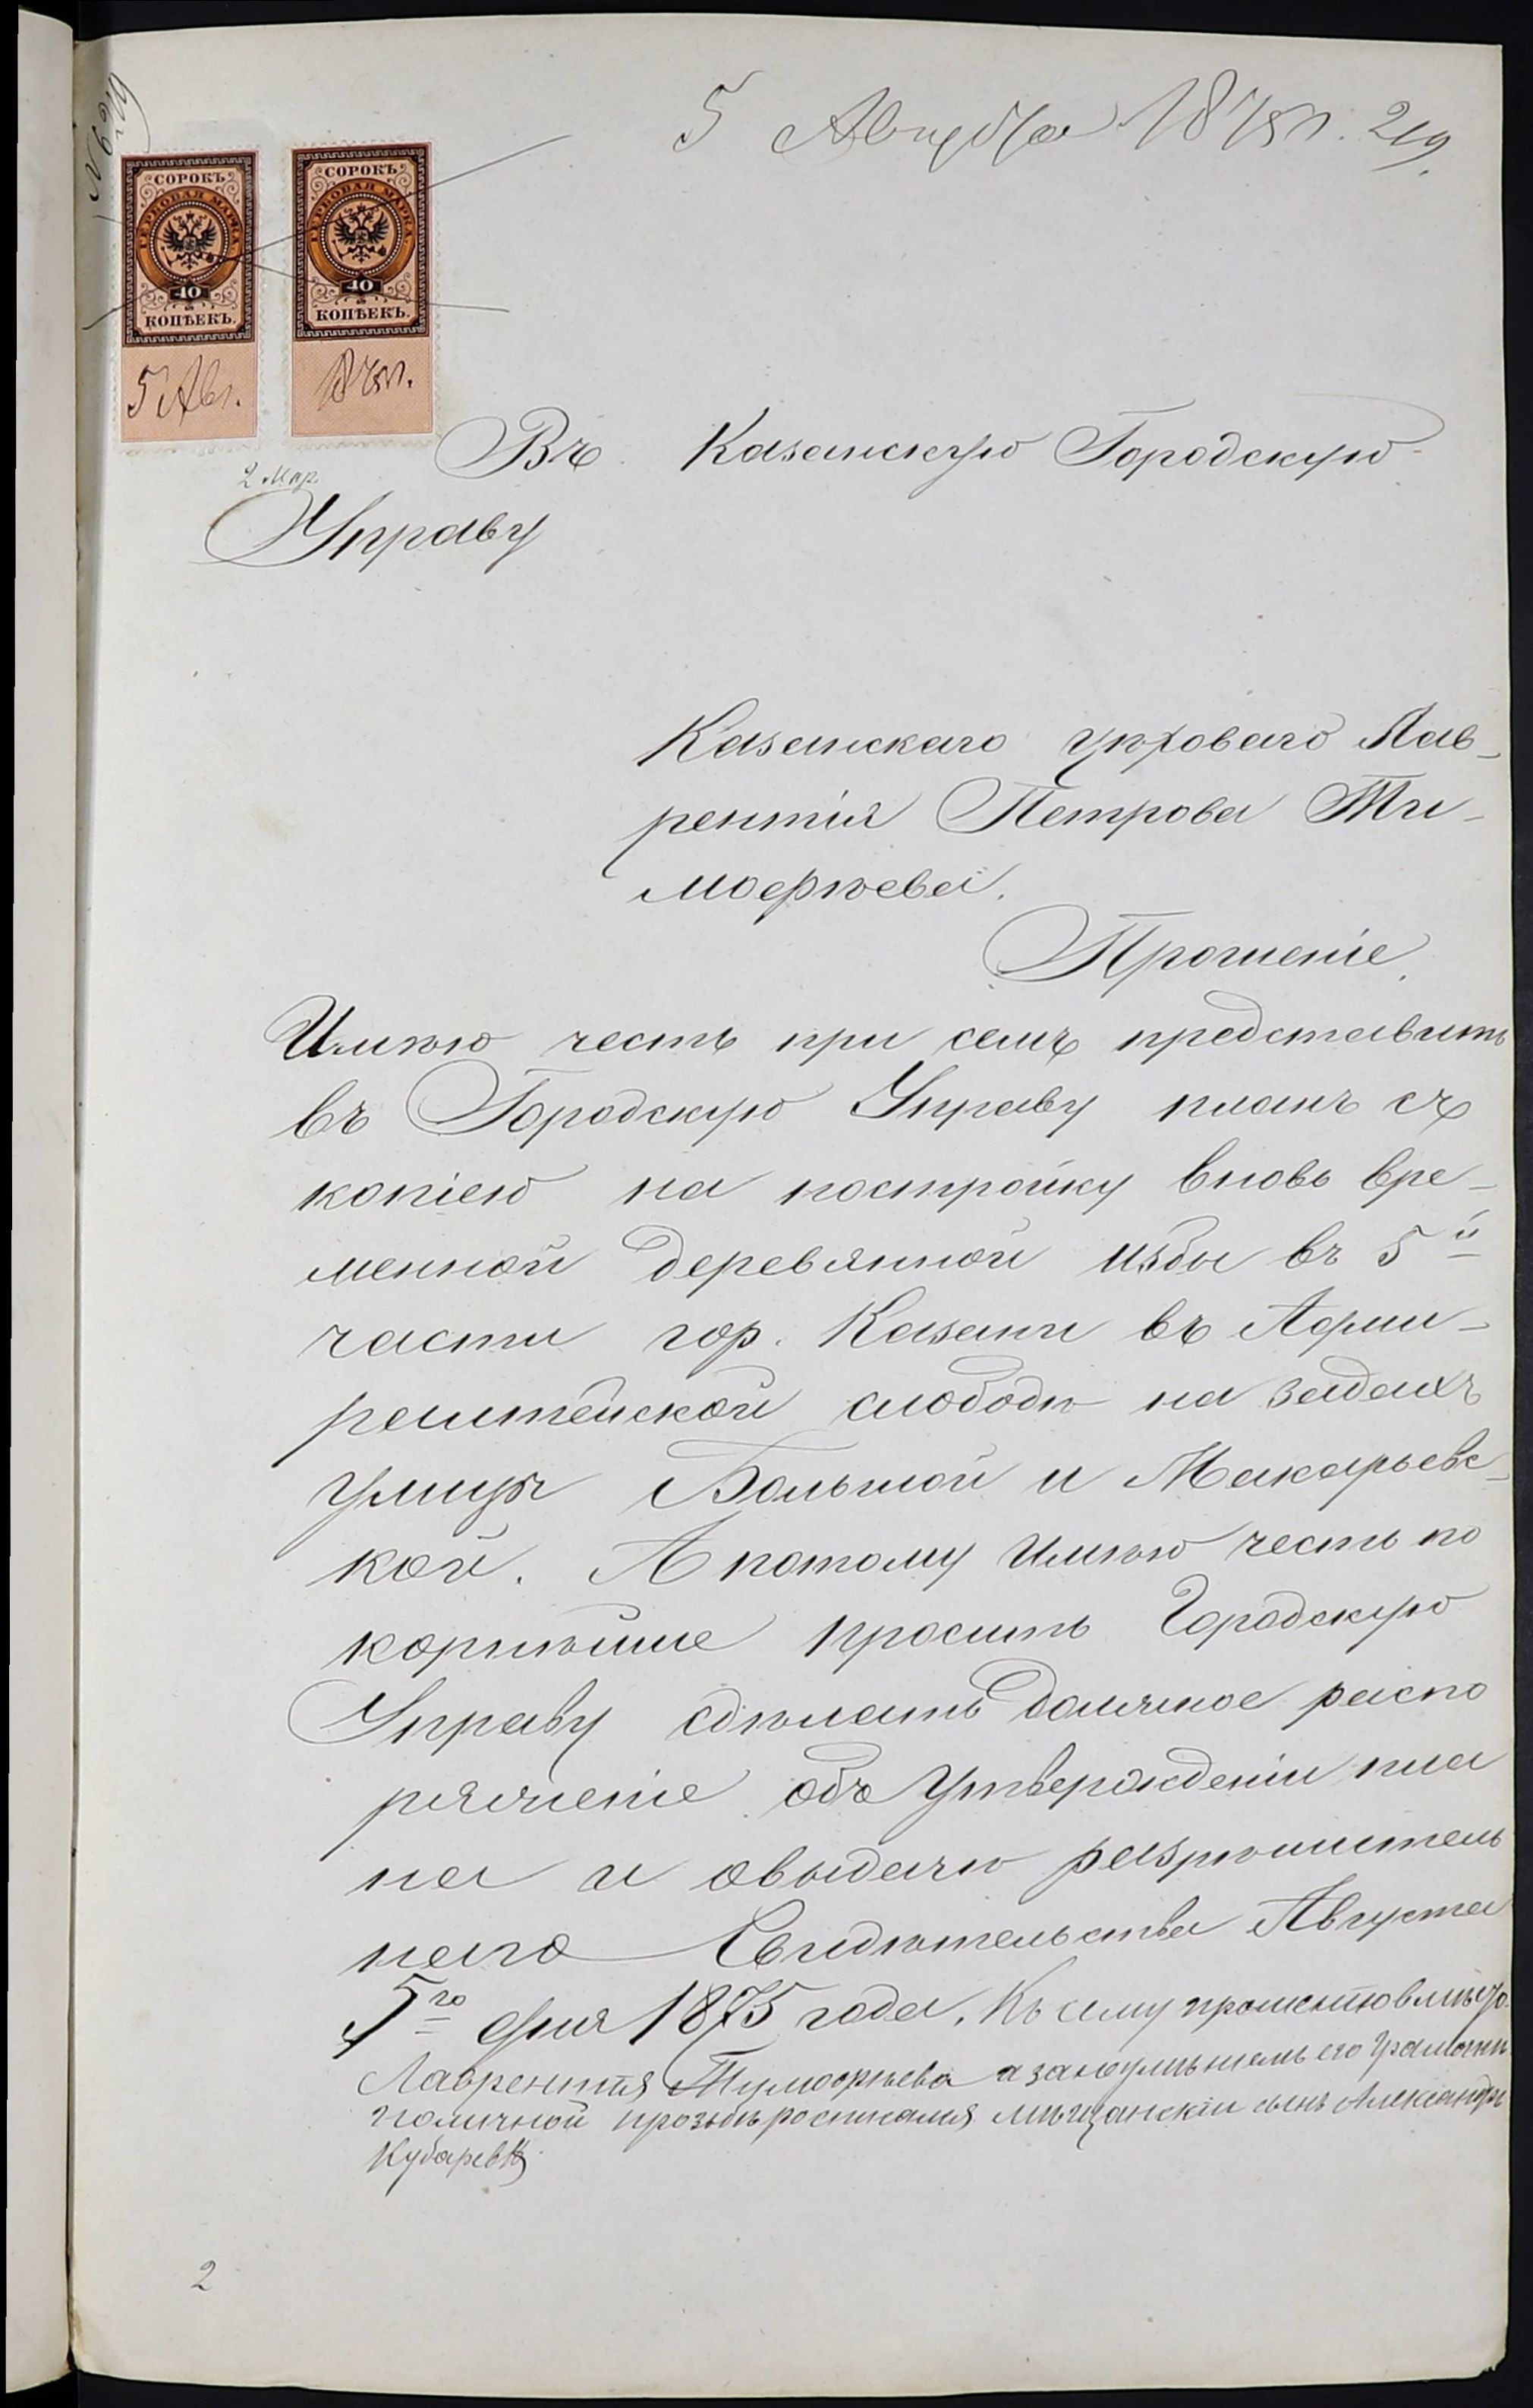 5 Августа 1875 г. 219.
СОРОКЪ
ГЕРБОВАЯ МАРКА
40
КОПѢЕКЪ.
5 Авг.
СОРОКЪ
ГЕРБОВАЯ МАРКА
40
КОПѢЕКЪ.
1875 г.
2 мар.
Въ Казанскую Городскую
Управу
Казанскаго цѣховаго Лав-
рентія Петрова Ти-
мофѣева.
Прошеніе.
Имѣю честь при семъ представить
въ Городскую Управу планъ съ
копіею на постройку вновь вре-
менной деревянной избы въ 5й
части гор. Казани въ Адми-
ралтейской слободѣ на задахъ
улицъ Большой и Макарьевс-
кой. А потому имѣю честь по
корнѣйше просить Городскую
Управу сдѣлать должное распо
ряженіе объ утвержденіи пла
на и овыдачѣ разрѣшитель
наго Свидѣтельства Августа
5го дня 1875 года. Къ сему прошенію вмѣсто
Лаврентія Тимофѣева а заноумѣніемъ его Грамоты
поличной прозьбѣ росписался мѣщанскій сынъ Александръ
Кубаревъ
2